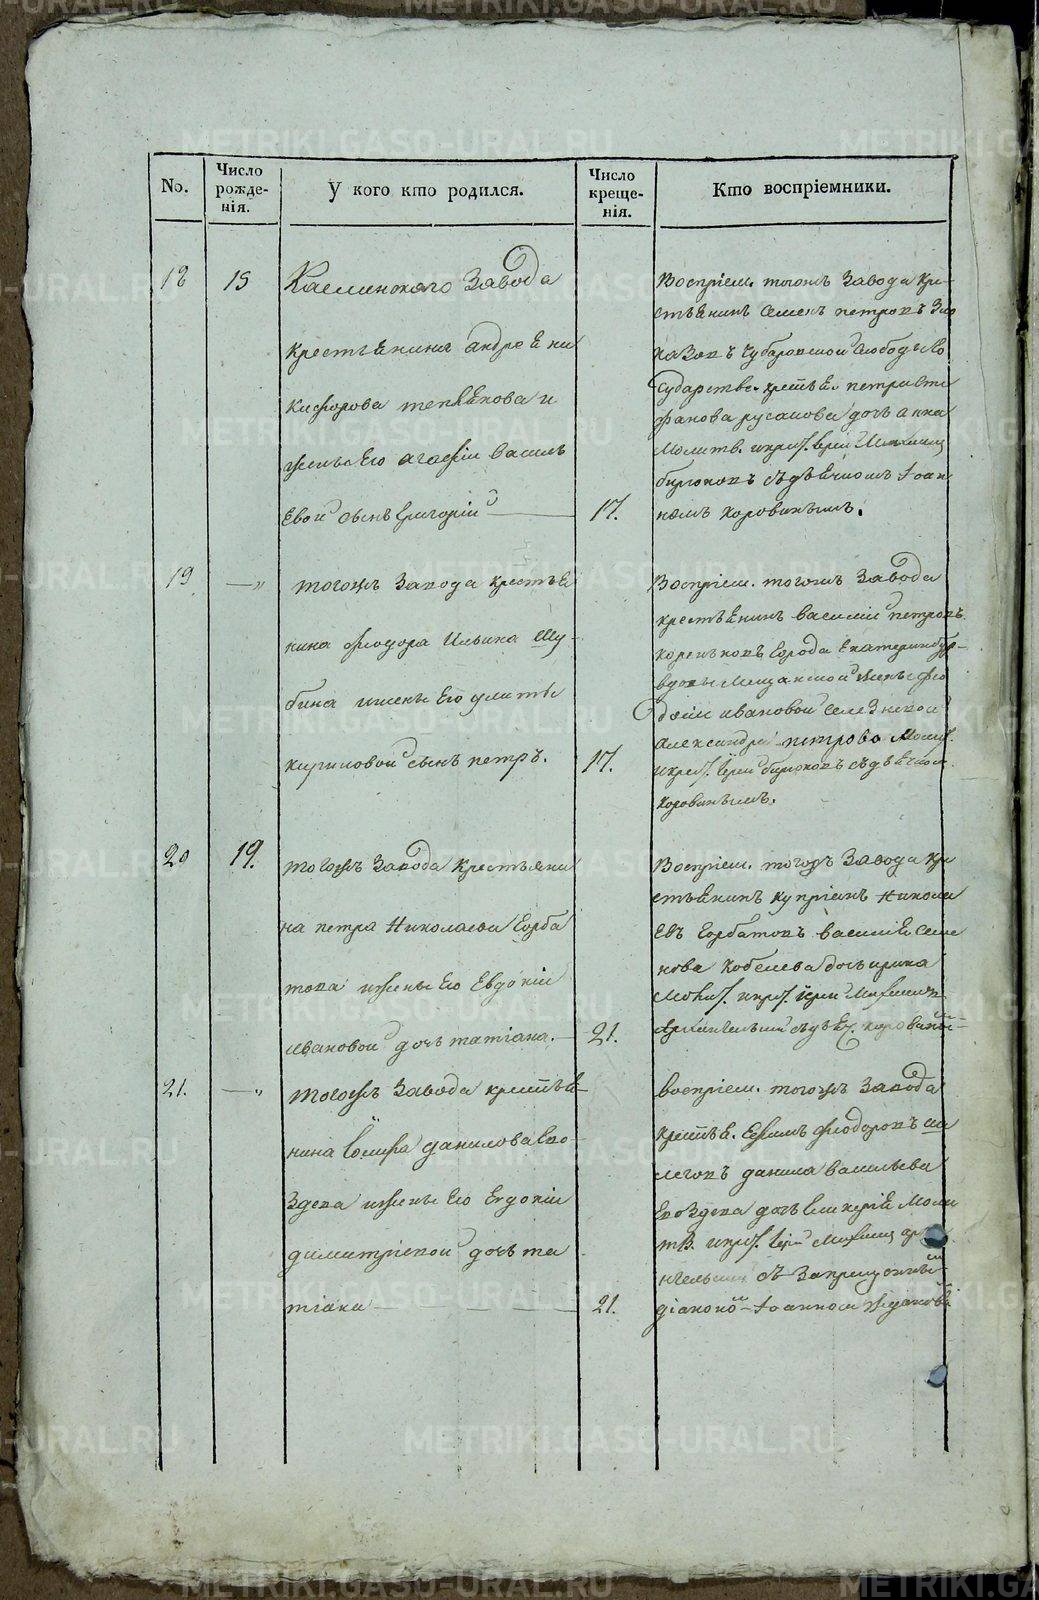 No.
Число рожде-
нія.
У кого кто родился.
Число креще-
нія.
Кто воспріемники.
18
15
Каслинскаго Завода
крестьянина андрея ни
кифорова теплякова и
жены его агафіи василь
евой сынъ григорій
17.
Воспріем. тогожъ завода кре-
стьянинъ Семенъ петровъ
казовъ Чубаровской слободы го
сударствен. крестьян. петра сте
фанова русанова дочь анна
Молитв. и крест. іерей Михаилъ
бирюковъ съ дьячкомъ Іоан
номъ коровинымъ.
19
— "
тогожъ Завода крестья
нина феодора Ильина Шу-
бина и жены его улиты
кириловой сынъ петръ.
17.
Воспріем. тогожъ Завода
крестьянинъ василій петровъ
города Екатеринбур-
вдовы мещанской жены фео
досіи ивановой селезневой
Александра петрова Молит.
и крест. іерей бирюковъ съ дьячком
коровинымъ.
20
19.
тогожъ Завода Крестьяни
на петра Николаева Горба
това и жены его Евдокіи
ивановой дочь татіана.
21.
Воспріем. тогожъ Завода кре
стьянинъ купріянъ Никола
евъ Горбатовъ василія семе
нова Кобелева дочь ирина
Молит. и крест. іерей Михаилъ
Архангельскій съ дьяч. коровинымъ
21.
— "
тогожъ Завода крестья
нина Іосифа данилова гво-
здева и жены его Евдокіи
димитріевой дочь та
тіана
21.
воспріем. тогожъ Завода
крестья. Ефимъ феодоровъ
даніила васильева
гвоздева дочь гликерія Моли
тв. и крест. іерей Михаилъ ар
нгельскій съ запрещеннымъ
діакономъ Іоанномъ
METRIKI.GASO-URAL.RU